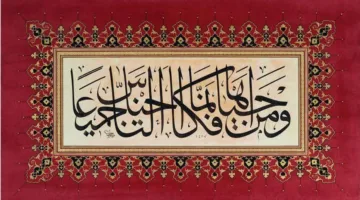 وَمَنْ أَحْيَاهَا فَكَأَنَّمَا أَحْيَا النَّاسَ جَمِيعًا